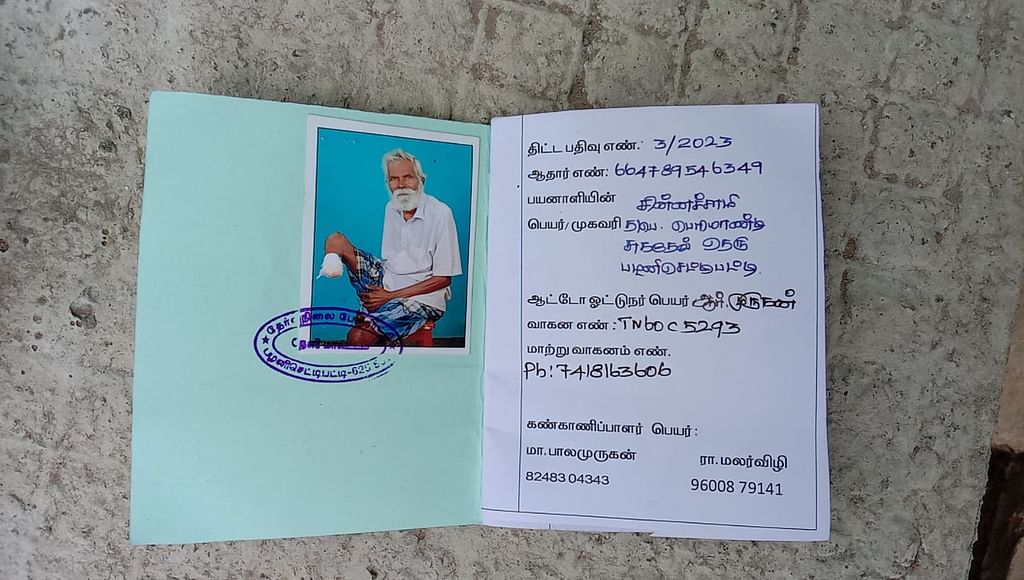 திட்ட பதிவு எண்: 3/2023
ஆதார் எண்: 664789546349
பயனாளியின் சின்னச்சாமி
பெயர்/முகவரி
பழனிசெட்டிபட்டி.
ஆட்டோ ஓட்டுநர் பெயர் ஆர். முருகன்
வாகன எண்: TN60C5293
மாற்று வாகனம் எண்.
Ph: 7418163606
கண்காணிப்பாளர் பெயர்:
மா.பாலமுருகன் ரா.மலர்விழி
82483 04343 96008 79141
தேர்வுநிலை
பழனிசெட்டிபட்டி-625